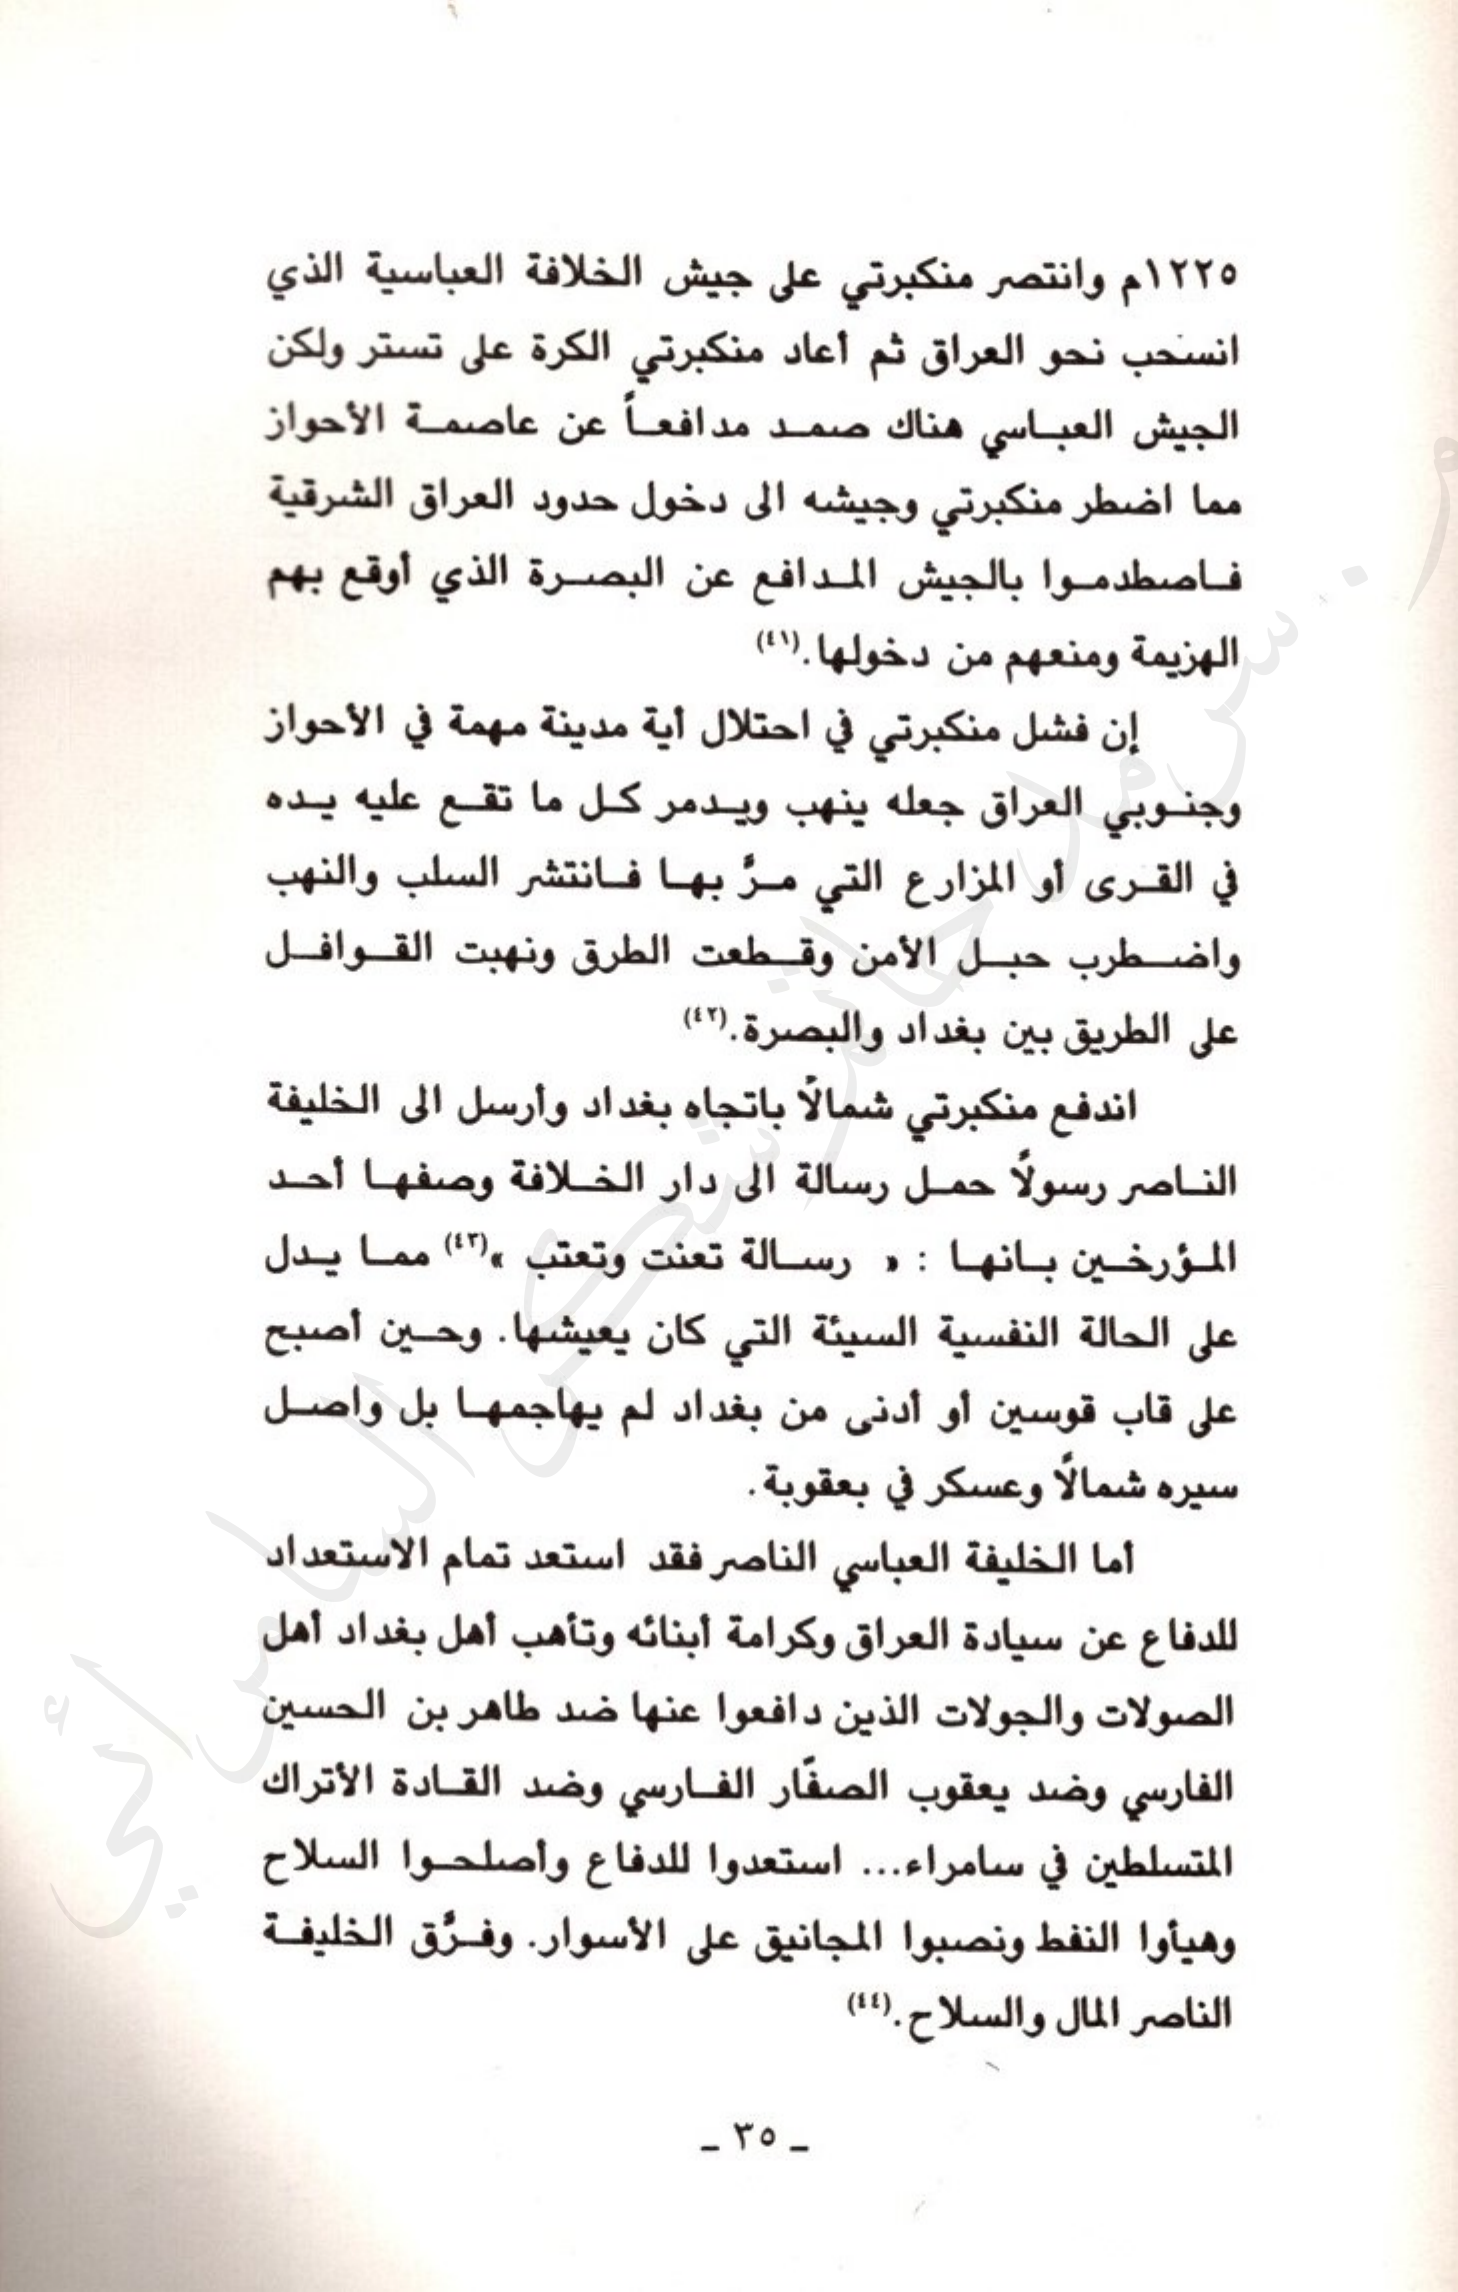 ١٢٢٥م وانتصر منكبرتي على جيش الخلافة العباسية الذي
انسحب نحو العراق ثم أعاد منكبرتي الكرة على تستر ولكن
الجيش العباسي هناك صمد مدافعاً عن عاصمة الأحواز
مما اضطر منكبرتي وجيشه الى دخول حدود العراق الشرقية
فاصطدموا بالجيش المدافع عن البصرة الذي أوقع بهم
الهزيمة ومنعهم من دخولها.(٤١)
إن فشل منكبرتي في احتلال أية مدينة مهمة في الأحواز
وجنوبي العراق جعله ينهب ويدمر كل ما تقع عليه يده
في القرى أو المزارع التي مرَّ بها فانتشر السلب والنهب
واضطرب حبل الأمن وقطعت الطرق ونهبت القوافل
على الطريق بين بغداد والبصرة.(٤٢)
اندفع منكبرتي شمالًا باتجاه بغداد وأرسل الى الخليفة
الناصر رسولًا حمل رسالة الى دار الخلافة وصفها أحد
المؤرخين بانها : « رسالة تعنت وتعتب »(٤٣) مما يدل
على الحالة النفسية السيئة التي كان يعيشها. وحين أصبح
على قاب قوسين أو أدنى من بغداد لم يهاجمها بل واصل
سيره شمالًا وعسكر في بعقوبة.
أما الخليفة العباسي الناصر فقد استعد تمام الاستعداد
للدفاع عن سيادة العراق وكرامة أبنائه وتأهب أهل بغداد أهل
الصولات والجولات الذين دافعوا عنها ضد طاهر بن الحسين
الفارسي وضد يعقوب الصفّار الفارسي وضد القادة الأتراك
المتسلطين في سامراء... استعدوا للدفاع وأصلحوا السلاح
وهيأوا النفط ونصبوا المجانيق على الأسوار. وفرَّق الخليفة
الناصر المال والسلاح.(٤٤)
ـ ٣٥ ـ